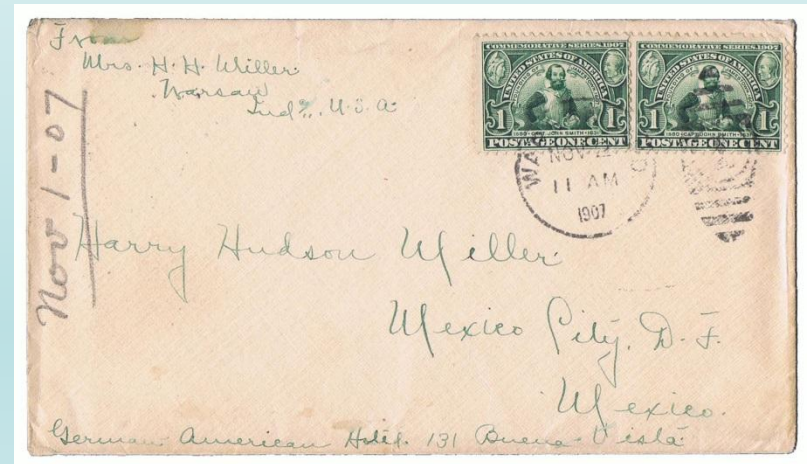 From
Mrs. H. H. Miller.
Warsaw
Ind., U.S.A.
COMMEMORATIVE SERIES 1907
UNITED STATES OF AMERICA
1 1
1580 · CAPT. JOHN SMITH · 1631
POSTAGE ONE CENT
COMMEMORATIVE SERIES 1907
UNITED STATES OF AMERICA
1 1
1580 · CAPT. JOHN SMITH · 1631
POSTAGE ONE CENT
NOV
11 AM
1907
Nov 1-07
Harry Hudson Miller.
Mexico City. D. F.
Mexico.
German American Hotel. 131 Buena Vista